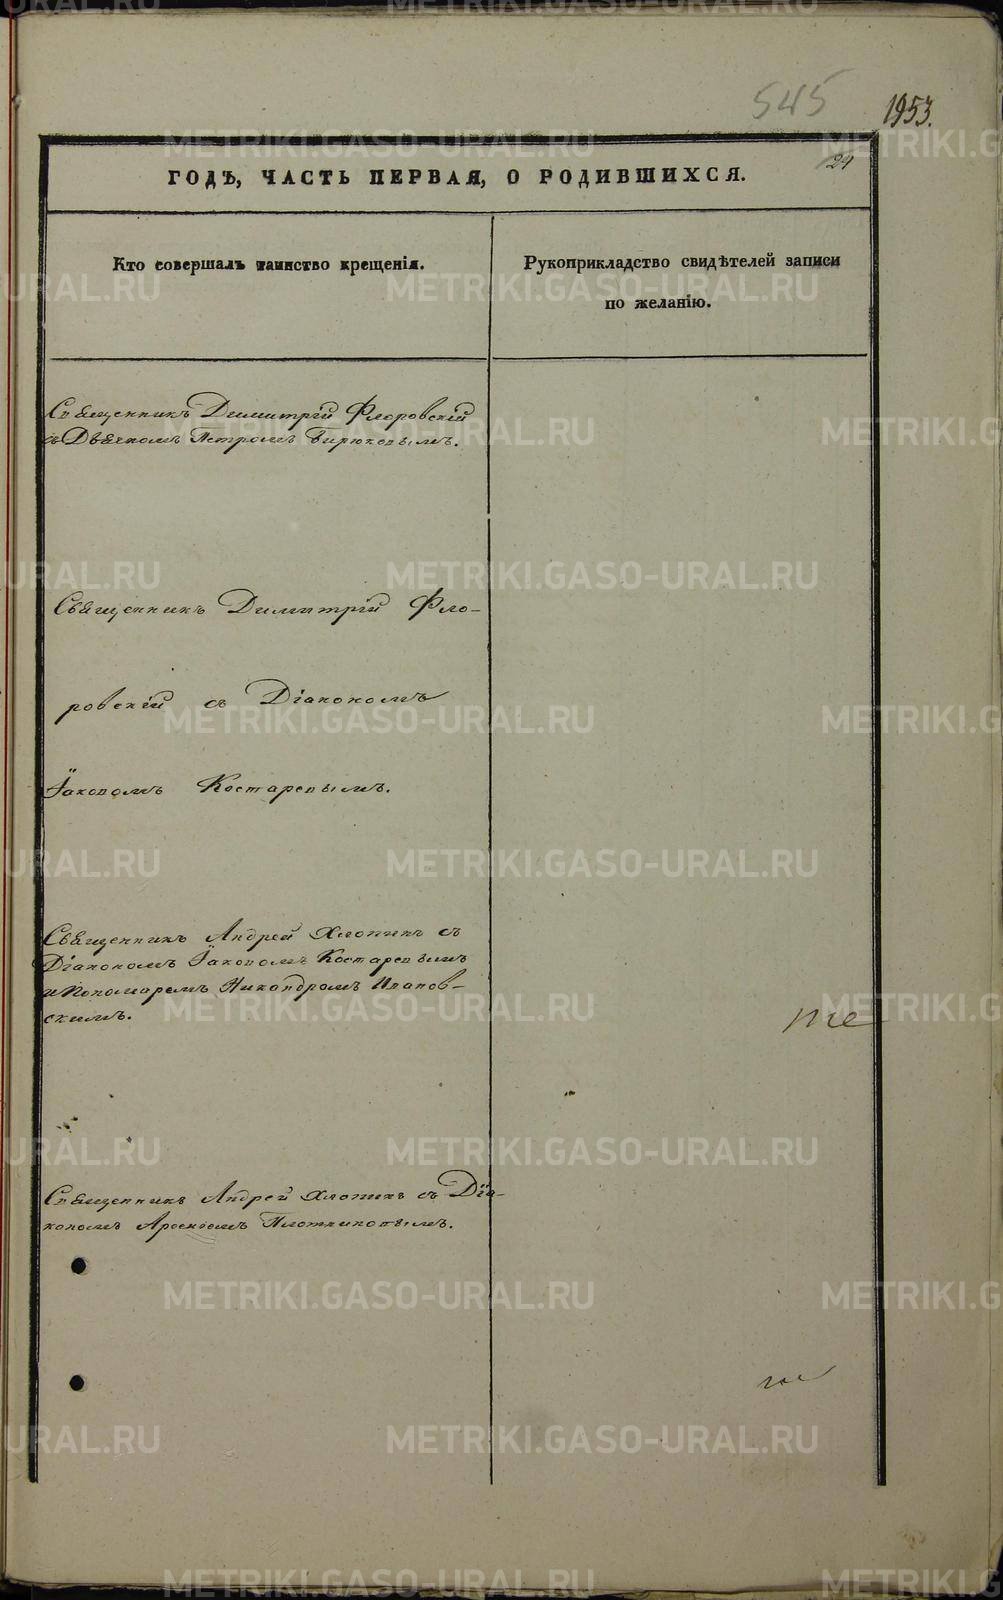 545
1953.
24
ГОДѢ, ЧАСТЬ ПЕРВАЯ, О РОДИВШИХСЯ.
Кто совершалъ таинство крещенія.
Рукоприкладство свидѣтелей записи
по желанію.
Священникъ Димитрій Флоровскій
съ Дьячкомъ Петромъ Бирюковымъ.
Священникъ Димитрій Фло-
ровскій съ Діакономъ
Іаковомъ Костаревымъ.
Священникъ Андрей Хлопинъ съ
Діакономъ Іаковомъ Костаревымъ
и Пономаремъ Никандромъ Иванов-
скимъ.
Священникъ Андрей Хлопинъ съ Діа-
кономъ Арсеніемъ Плотниковымъ.
METRIKI.GASO-URAL.RU